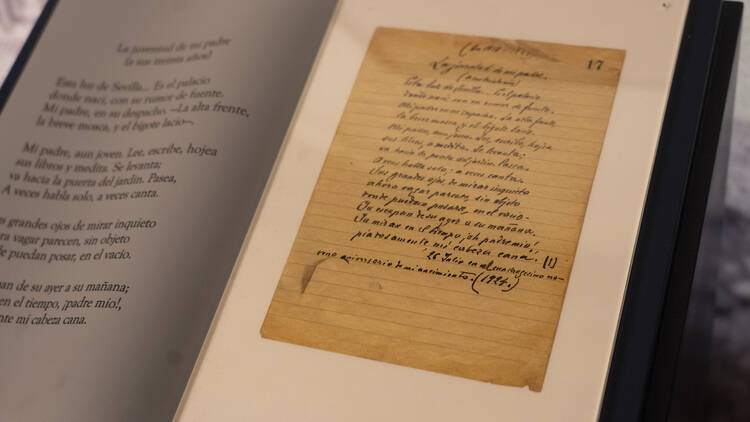 La juventud de mi padre
(a sus treinta años)
Esta luz de Sevilla... Es el palacio
donde nací, con su rumor de fuente.
Mi padre, en su despacho. –La alta frente,
la breve mosca, y el bigote lacio–.
Mi padre, aun joven. Lee, escribe, hojea
sus libros y medita. Se levanta;
va hacia la puerta del jardín. Pasea,
A veces habla solo, a veces canta.
s grandes ojos de mirar inquieto
ra vagar parecen, sin objeto
e puedan posar, en el vacío.
an de su ayer a su mañana;
en el tiempo, ¡padre mío!,
nte mi cabeza cana.
17
La juventud de mi padre.
Esta luz de Sevilla. Es el palacio
donde nací con su rumor de fuente.
Mi padre en su despacho. La alta frente,
la breve mosca y el bigote lacio.
Mi padre, aun joven. Lee, escribe, hojea
sus libros, y medita. Se levanta;
va hacia la puerta del jardín. Pasea.
A veces habla solo; a veces canta.
Sus grandes ojos de mirar inquieto
ahora vagar parecen, sin objeto
donde puedan posar, en el vacío.
Ya escapan de su ayer a su mañana;
Ya miran en el tiempo, ¡oh padre mío!,
piadosamente mi cabeza cana. (1)
aniversario de mi nacimiento.